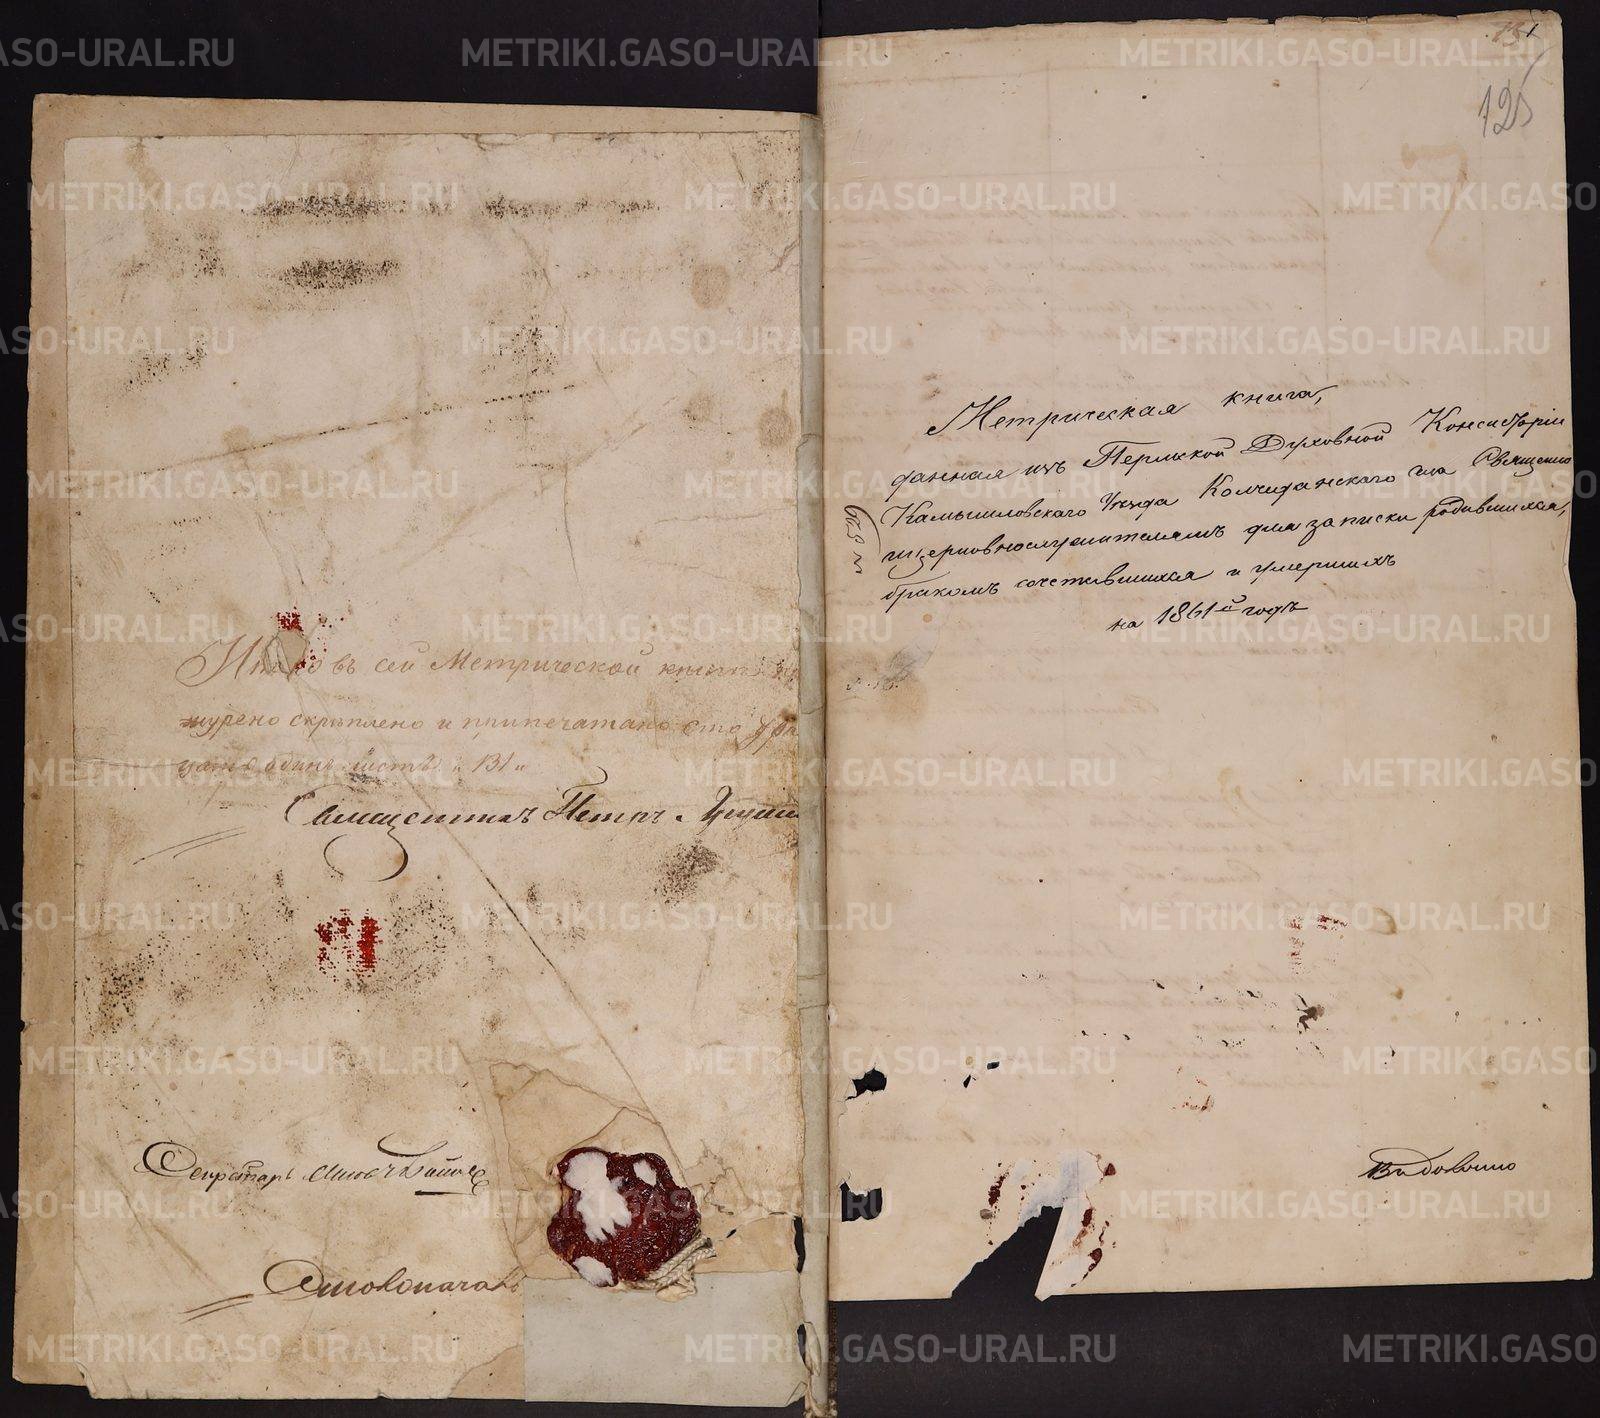 Итого въ сей Метрической книгѣ
шнурено скрѣплено и припечатано сто
цать одинъ листъ „131„
Священникъ Петръ
Секретарь
Столоначаль
125
Метрическая книга,
данная изъ Пермской Духовной Консисторіи
Камышловскаго Уѣзда Колчеданскаго села Священно
ицерковнослужителямъ для записки родившихся,
бракомъ сочетавшихся и умершихъ
на 1861й годъ
METRIKI.GASO-URAL.RU